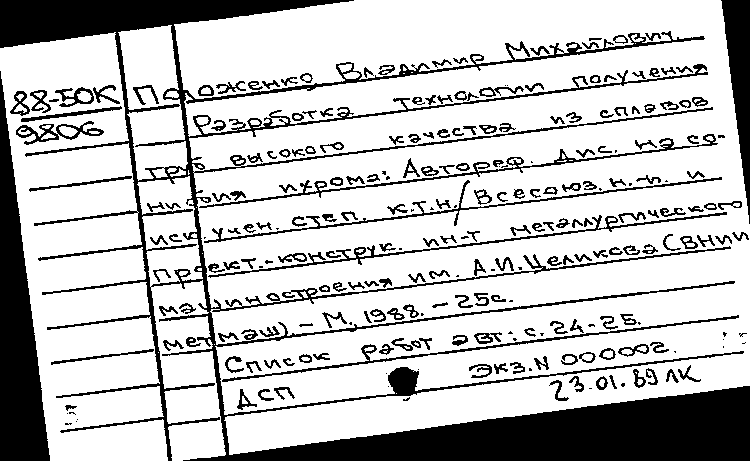 88-50К Положенко, Владимир Михайлович.
9806 Разработка технологии получения
труб высокого качества из сплавов
ниобия и хрома: Автореф. дис. на со-
иск. учен. степ. к.т.н. / Всесоюз. н.-и. и
проект.-конструк. ин-т металлургического
машиностроения им. А.И. Целикова (ВНИИ
метмаш). - М, 1988. - 25с.
Список работ авт: с. 24-25.
ДСП Экз. N 000002.
23.01.89 ЛК